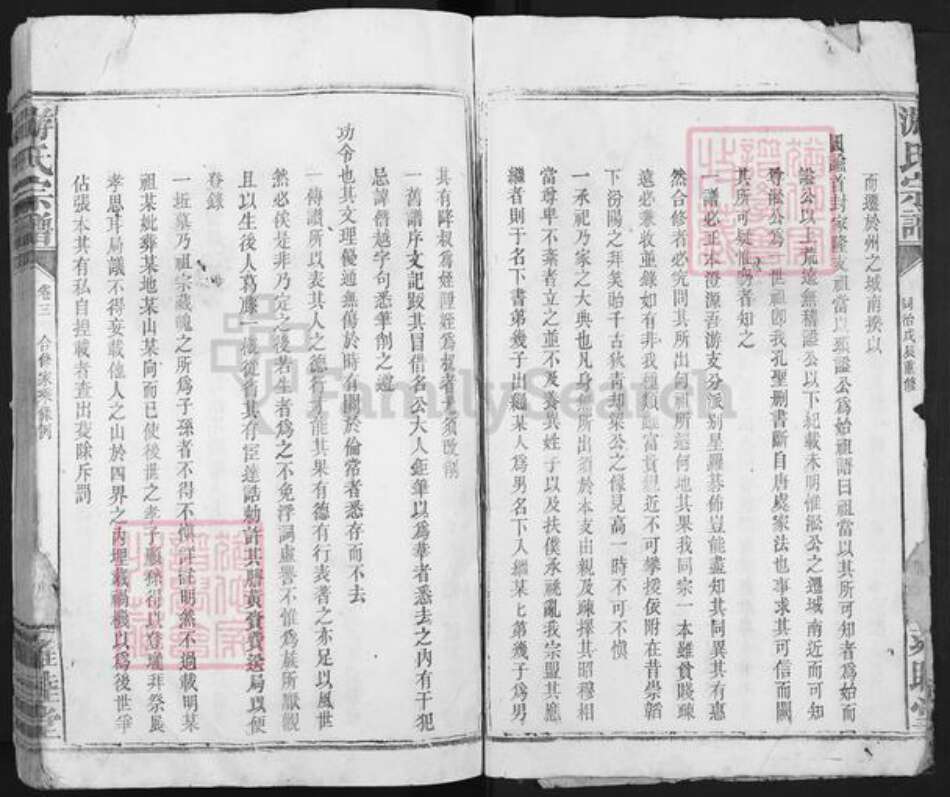 游氏宗譜
同治戊辰重修
而遷於州之城南揆以
國論首封家隆支祖當以班諡公為始祖語曰祖當以其所可知者為始而
諡公以上荒遠無稽諡公以下紀載未明惟淞公之遷城南近而可知
尊淞公為一世祖卽我孔聖刪書斷自唐處家法也事求其可信而闕
其所可疑惟明者知之
一譜必正本澄源吾游支分派别星羅棊佈豈能盡知其同異其有惠
然合修者必究問其所出何祖所遷何地其果我同宗一本雖貧賤疎
遠必兼收並錄如有非我種類雖富貴親近不可攀援依附在昔崇韜
下汾陽之拜笑貽千古狄青却梁公之像見高一時不可不愼
一承祀乃家之大典也凡身無所出須於本支由親及疎擇其昭穆相
當尊卑不紊者立之並不及養異姓子以及扶僕承祧亂我宗盟其應
繼者則于名下書弟幾子出繼某人為男名下入繼某七第幾子為男
其有降叔為姪陞姪為叔者必須改稱
一舊譜序文記跋其目借名公大人鉅筆以為華者悉去之內有干犯
忌諱僭越字句悉筆削之遵
功令也其文理優通無傷於時有關於倫常者悉存而不去
一傳讚所以表其人之德行才能其果有德有行表著之亦足以風世
然必俟是非乃定之後若生者為之不免浮詞虛譽不惟為族所厭觀
且以生後人爲
登錄
一坵墓乃祖宗藏魄之所為子孫者不得不愼註註明然不過載明某
祖某妣葬某地某山某向而已使後世之孝子順孫得以登壠拜祭展
孝思耳局議不得妄載他人之山於四界之內埋栽禍機以為後世爭
佔張本其有私自揑載者查出芟除斥罰
游氏宗譜
卷三
合修家乘條例